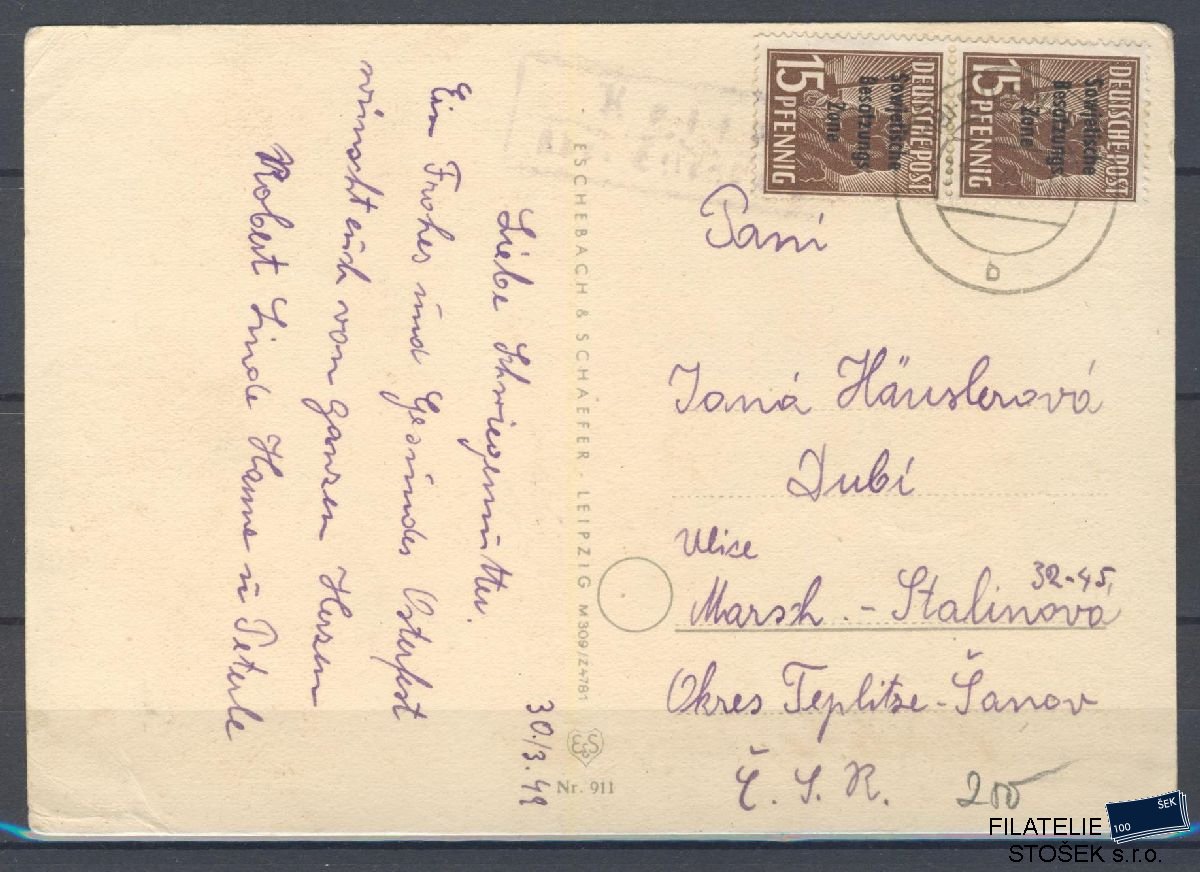 30./3.49
Liebe Schwiegemutter.
Ein Frohes und Gesundes Osterfest
winscht euch von ganzen Herzen
Robert Linde Hanne u Peterle
ESCHEBACH & SCHAEFER · LEIPZIG M309/Z4781
Nr. 911
DEUTSCHE POST
15 PFENNIG
Sowjetische
Besatzungs
Zone
DEUTSCHE POST
15 PFENNIG
Sowjetische
Besatzungs
Zone
b
Paní
Janá Häuslerová
Dubí
Ulice
32-45
Marsch. - Stalinová
Okres Teplitze-Šanov
Č. S. R.
200
100 ŠEK
FILATELIE
STOŠEK s.r.o.